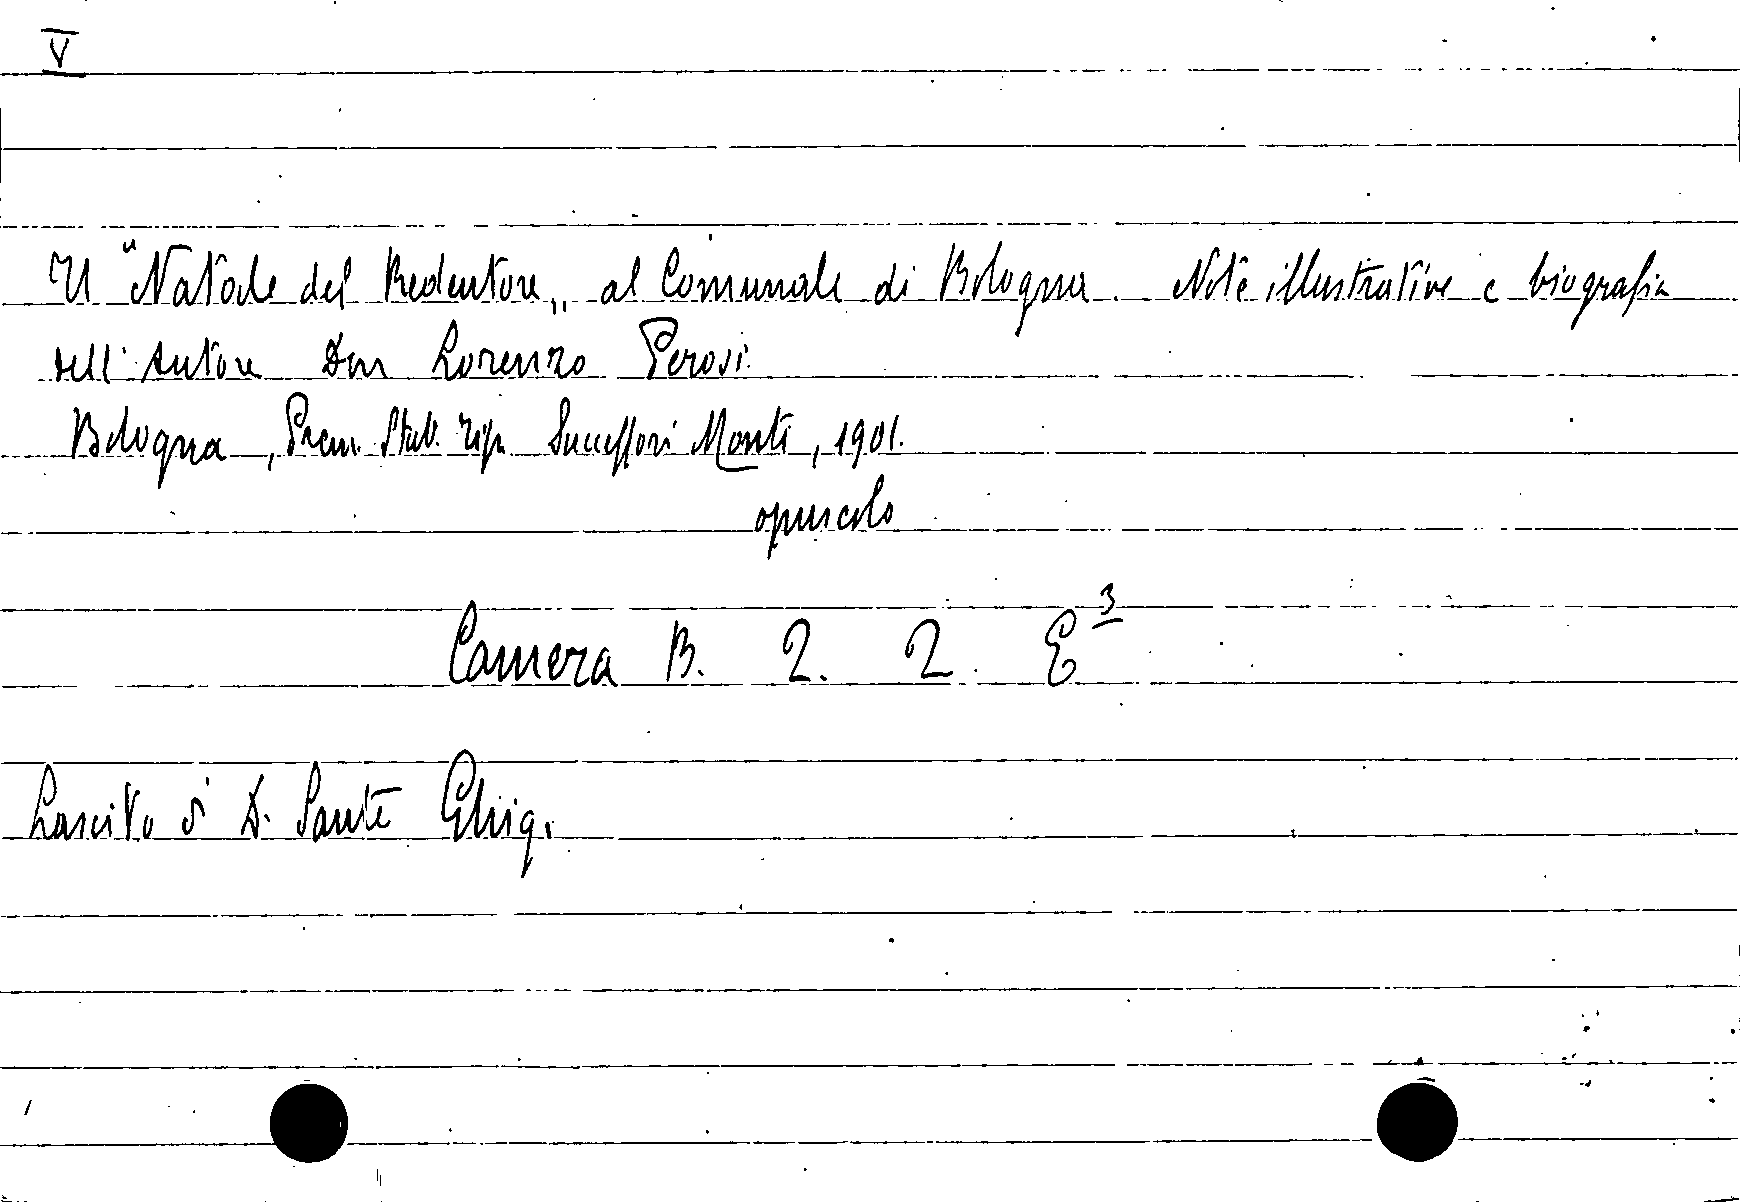 V
Il "Natale del Redentore„ al Comunale di Bologna. Note illustrative e biografia
dell'Autore Don Lorenzo Perosi.
Bologna, Prem. Stab. Tip. Successori Monti, 1901.
opuscolo
Camera B. 2. 2. E³
Lascito di D. Sante Ghig.